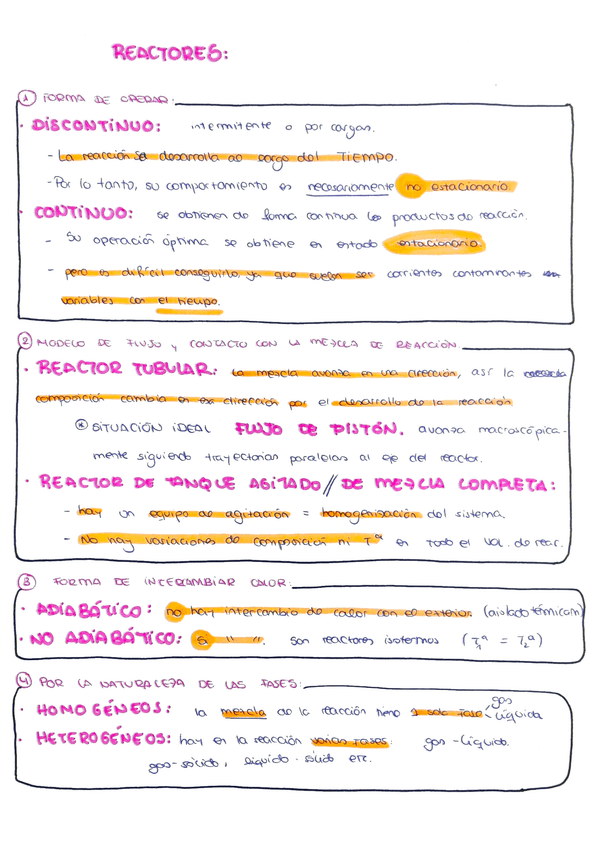 REACTORES:
1 FORMA DE OPERAR:
· DISCONTÍNUO: intermitente o por cargas.
- La reacción se desarrolla ao cargo del TIEMPO.
- Por lo tanto, su comportamiento es necesariamente no estacionario.
· CONTÍNUO: se obtienen de forma continua los productos de reacción.
- Su operación óptima se obtiene en estado estacionario.
- pero es difícil conseguirlo, ya que suelen ser corrientes contaminantes
variables con el tiempo.
2 MODELO DE FLUJO y CONTACTO CON LA MEZCLA DE REACCIÓN.
· REACTOR TUBULAR: la mezcla avanza en una dirección, así la
composición cambia en esa dirección por el desarrollo de la reacción
* SITUACIÓN IDEAL FLUJO DE PISTÓN. avanza macroscópica-
mente siguiendo trayectorias paralelas al eje del reactor.
· REACTOR DE TANQUE AGITADO // DE MEZCLA COMPLETA:
- hay un equipo de agitación = homogenización del sistema.
- No hay variaciones de composición ni Tª en todo el vol. de reac.
3 FORMA DE INTERCAMBIAR CALOR:
· ADIABÁTICO: no hay intercambio de calor con el exterior. (aislado térmicam)
· NO ADIABÁTICO: si " ". son reactores isotermos (T1ª = T2ª)
4 POR LA NATURALEZA DE LAS FASES:
· HOMOGÉNEOS: la mezcla de la reacción tiene 1 sola fase gas
líquida
· HETEROGÉNEOS: hay en la reacción varias fases: gas-líquido.
gas-sólido, líquido-sólido etc.